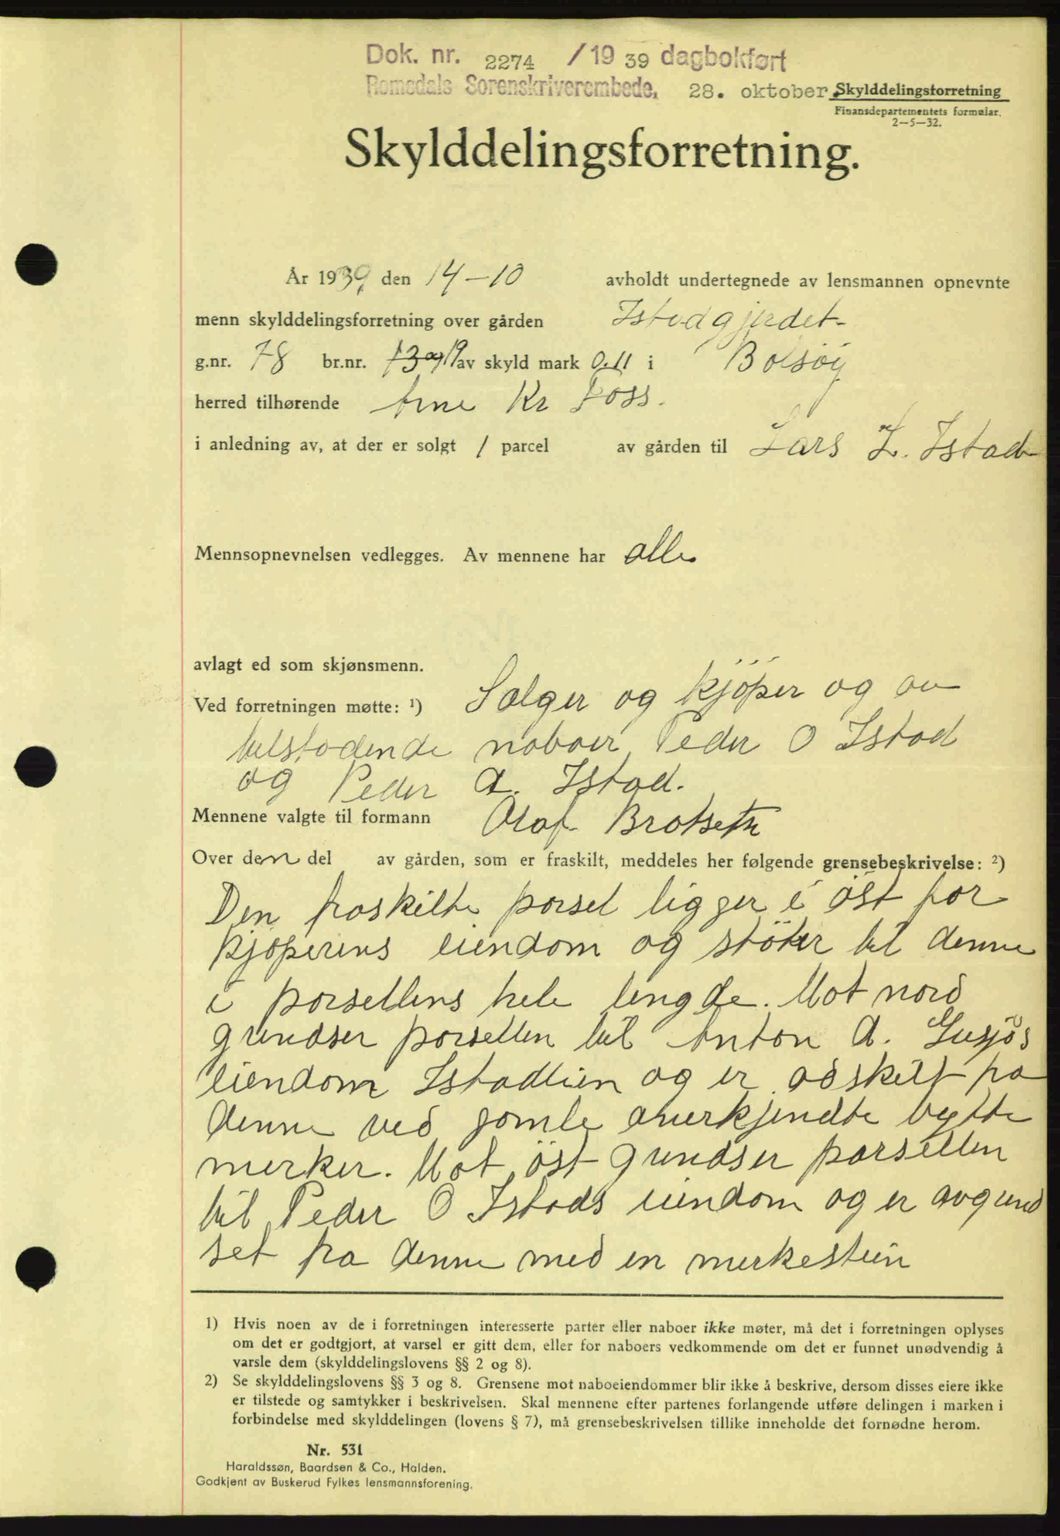 Dok. nr. 2274 /1939 dagbokført
Romsdals Sorenskriverembede, 28. oktober Skylddelingsforretning
Finansdepartementets formular.
2—5—32.
Skylddelingsforretning.
År 1939, den 14-10 avholdt undertegnede av lensmannen opnevnte
menn skylddelingsforretning over gården Istadgjerdet
g.nr. 78 br.nr. 13 og 19 av skyld mark 0.11 i Bolsöy
herred tilhørende Arne Kr Foss.
i anledning av, at der er solgt 1 parcel av gården til Lars L. Istad
Mennsopnevnelsen vedlegges. Av mennene har alle
avlagt ed som skjønsmenn.
Ved forretningen møtte: ¹) Sælger og kjöper og av
tilstødende naboer Peder O Istad
og Peder A. Istad.
Mennene valgte til formann Olaf Brotseth
Over den del av gården, som er fraskilt, meddeles her følgende grensebeskrivelse: ²)
Den fraskilte parsel ligger i öst for
kjöperens eiendom og stöter til denne
i parsellens hele lengde. Mot nord
grundser parsellen til Anton A. Gusjös
eiendom Istadlien og er adskilt fra
denne ved gamle anerkjendte bytte
merker. Mot öst grundser parsellen
til Peder O Istads eiendom og er avgrund
set fra denne med en merkestein
1) Hvis noen av de i forretningen interesserte parter eller naboer ikke møter, må det i forretningen oplyses
om det er godtgjort, at varsel er gitt dem, eller for naboers vedkommende om det er funnet unødvendig å
varsle dem (skylddelingslovens §§ 2 og 8).
2) Se skylddelingslovens §§ 3 og 8. Grensene mot naboeiendommer blir ikke å beskrive, dersom disses eiere ikke
er tilstede og samtykker i beskrivelsen. Skal mennene efter partenes forlangende utføre delingen i marken i
forbindelse med skylddelingen (lovens § 7), må grensebeskrivelsen tillike inneholde det fornødne herom.
Nr. 531
Haraldssøn, Baardsen & Co., Halden.
Godkjent av Buskerud Fylkes lensmannsforening.